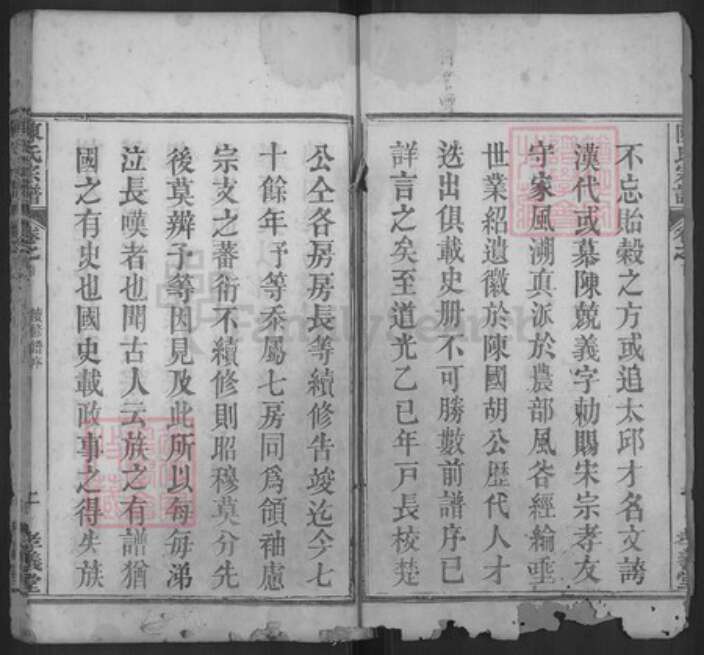 不忘貽穀之方或追太邱才名文誇
漢代或慕陳兢義字勅賜宋宗孝友
守家風溯真派於農部風谷經綸垂
世業紹遺徽於陳國胡公歷代人才
迭出俱載史册不可勝數前譜序已
詳言之矣至道光乙巳年戸長校楚
公仝各房房長等續修告竣迄今七
十餘年予等忝屬七房同爲領袖慮
宗支之蕃衍不續修則昭穆莫分先
後莫辨予等因見及此所以每每涕
泣長嘆者也聞古人云族之有譜猶
國之有史也國史載政事之得失族
陳氏宗譜
卷之
續修譜序
孝義堂
FamilySearch